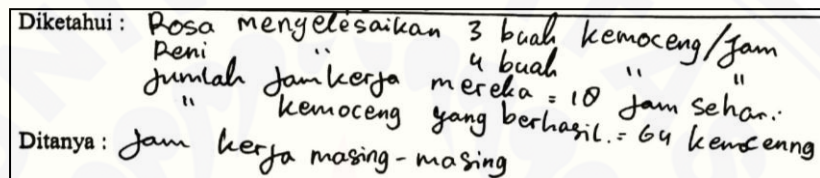 Diketahui : Rosa menyelesaikan 3 buah kemoceng/Jam
Reni " 4 buah " "
Jumlah Jam kerja mereka = 18 Jam sehari
" kemoceng yang berhasil. = 64 kemocenng
Ditanya : Jam kerja masing-masing